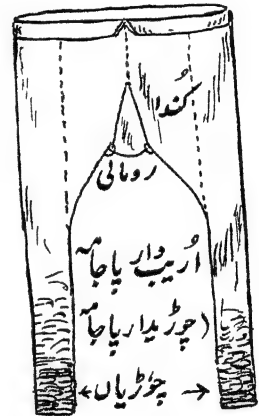 کُندا
رومالی
اُریب دار پاجامہ
(چوڑیدار پاجامہ
چوُڑیاں